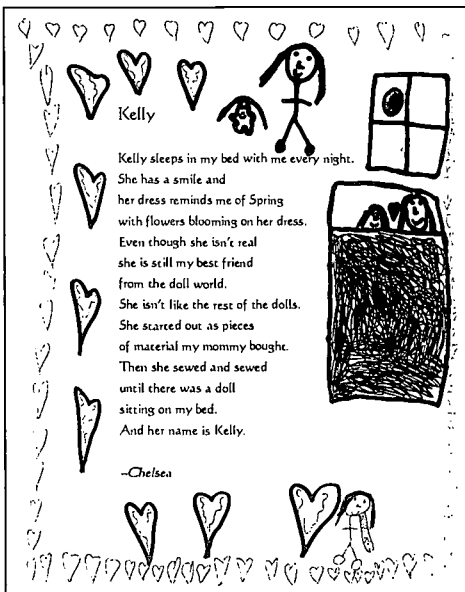 Kelly
Kelly sleeps in my bed with me every night.
She has a smile and
her dress reminds me of Spring
with flowers blooming on her dress.
Even though she isn't real
she is still my best friend
from the doll world.
She isn't like the rest of the dolls.
She started out as pieces
of material my mommy bought.
Then she sewed and sewed
until there was a doll
sitting on my bed.
And her name is Kelly.
--Chelsea